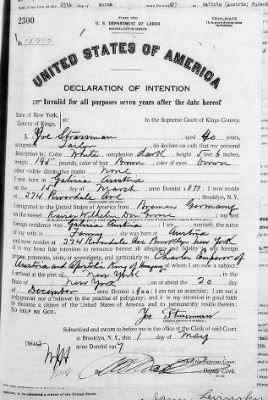 15th March 1877 Galicia (Austria) Poland
Form 2202
2300
U. S. DEPARTMENT OF LABOR
NATURALIZATION SERVICE
TRIPLICATE
UNITED STATES OF AMERICA
DECLARATION OF INTENTION
Invalid for all purposes seven years after the date hereof
State of New York,
County of Kings,
In the Supreme Court of Kings County.
I, Joe Strassman aged 40 years,
occupation Tailor do declare on oath that my personal
description is: Color White, complexion dark, height 5 feet 6 inches,
weight 195 pounds, color of hair Brown, color of eyes brown
other visible distinctive marks None
I was born in Galicia Austria
on the 15 day of March, anno Domini 1877; I now reside
at 374 Rockaway Ave Brooklyn, N. Y.
I emigrated to the United States of America from Bremen Germany
on the vessel Kaiser Wilhelm Der Grosse; my last
foreign residence was Galicia Austria; I am married; the name
of my wife is Fanny; she was born in Austria
and now resides at 374 Rockaway Ave Brooklyn New York
It is my bona fide intention to renounce forever all allegiance and fidelity to any foreign
prince, potentate, state, or sovereignty, and particularly to Charles Emperor of
Austria and Apostolic King of Hungary, of whom I am now a subject; I
arrived at the port of New York, in the
State of New York, on or about the 20 day
of December, anno Domini 1900; I am not an anarchist; I am not a
polygamist nor a believer in the practice of polygamy; and it is my intention in good faith
to become a citizen of the United States of America and to permanently reside therein:
SO HELP ME GOD.
Joe Strassman
Subscribed and sworn to before me in the office of the Clerk of said Court
at Brooklyn, N. Y., this 1 day of May
anno Domini 1917